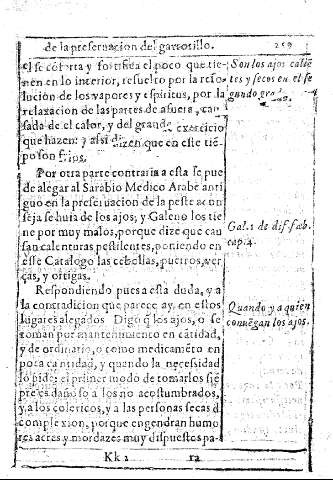 de la preseruacion del garrotillo. 259
el se cōforta y fortifica el poco que tie-
nen en lo interior, resuelto por la reso-
lucion de los vapores y espiritus, por la
relaxacion de las partes de afuera, cau
sada de el calor, y del grande exercicio
que hazen: y assi dizen que en este tiē-
po son frios.
Por otra parte contraria a esta se pue
de alegar al Sarabio Medico Arabe anti
guo en la preseruacion de la peste acon
seja se huia de los ajos; y Galeno los tie
ne por muy malos, porque dize que cau
san calenturas pestilentes, poniendo en
esse Catalogo las cebollas, puerros, ver
ças, y ortigas.
Respondiendo pues a esta duda, y a
la contradicion que parece ay en estos
lugares alegados Digo q̄ los ajos, o se
toman por mantenimiento en cātidad,
y de ordinario, o como medicamēto en
poca cantidad, y quando la necesidad
lo pide: el primer modo de tomarlos siē
pre es dañoso a los no acostumbrados,
y a los colericos, y a las personas secas d
complexion, porque engendran humo
res acres y mordazes muy dispuestos pa-
Kk 2 ra
Son los ajos caliē
tes y secos en el se
gundo grado.
Gal. 1 de dif. feb.
cap. 4.
Quando y a quien
conuēgan los ajos.